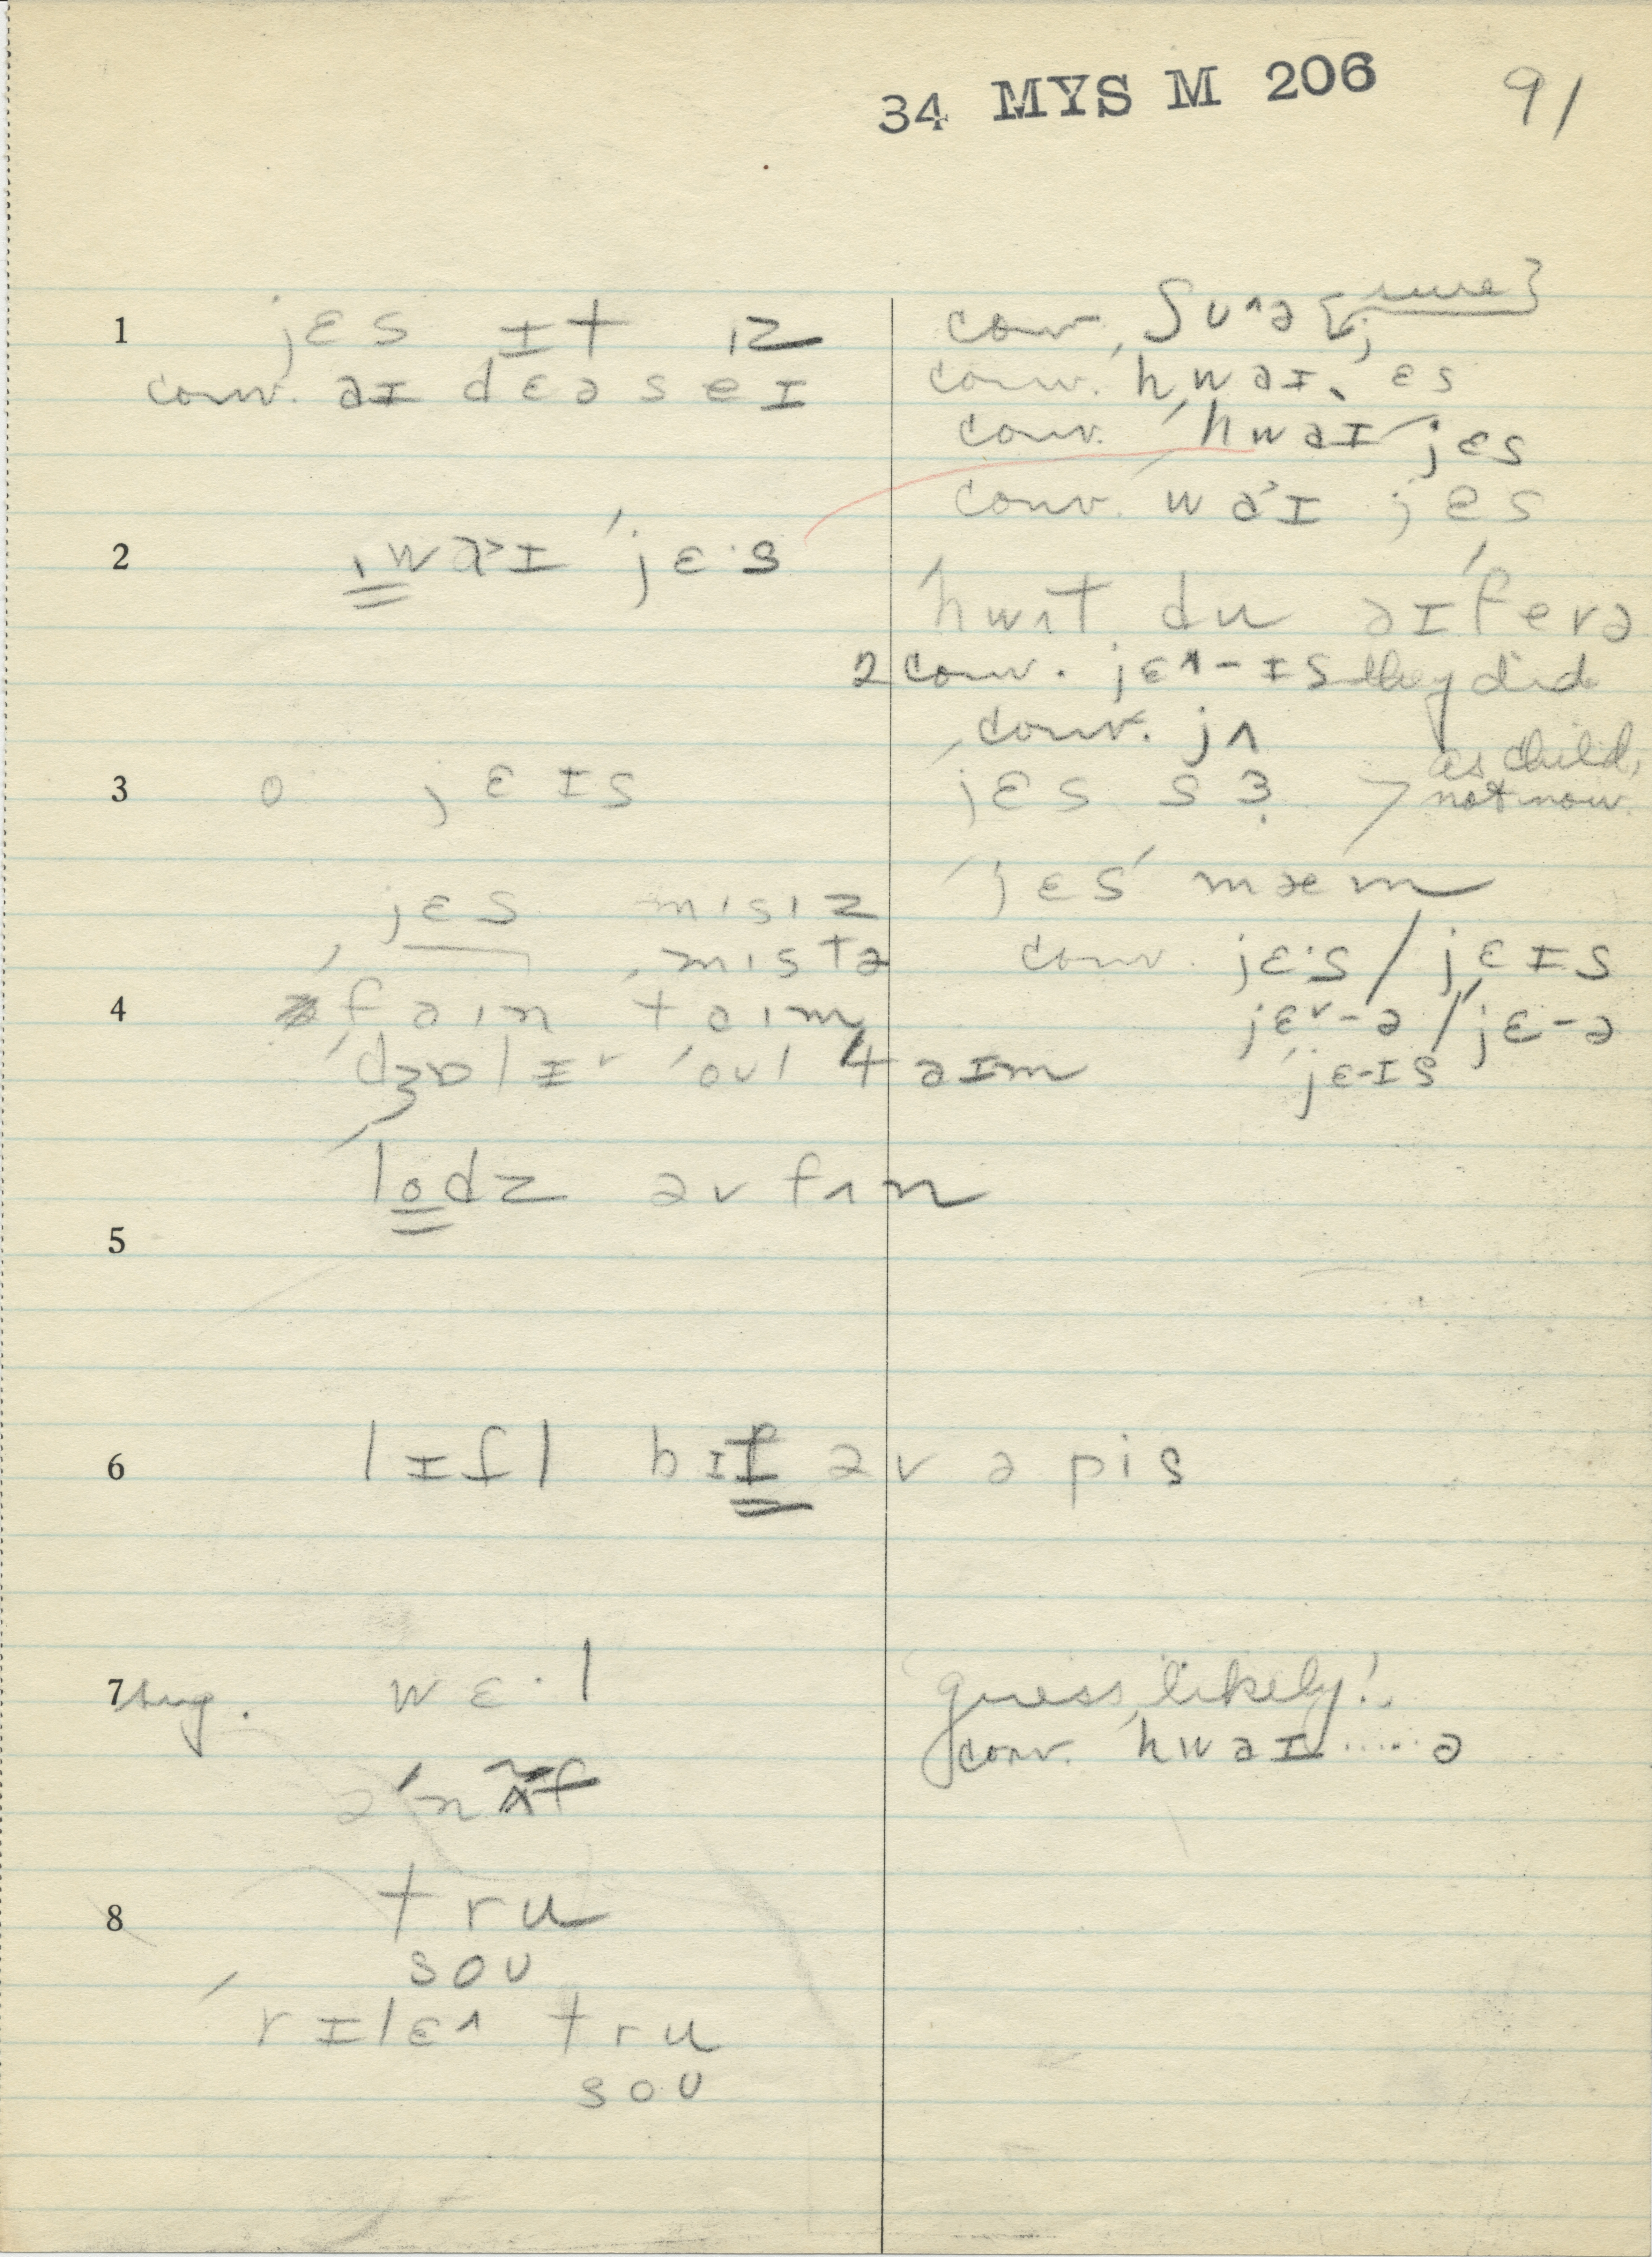 34 MYS M 206 91
1 jɛs ɪt ɪz
conv. aɪ dɛə seɪ
2 ˌwa˃ɪ ˈjɛ·s
3 o jɛɪs
jɛs mɪsɪz
ˌmɪstə
4 faɪn taɪm
ˈdʒɒlɪ˅ ˈoʊl taɪm
5 ˈlodz əv fʌn
6 lɪfl bɪt əv ə pis
7 sug. wɛ·l
əˈnʌf
8 tru
soʊ
ˈrɪlɛ^ tru
soʊ
conv. ʃʊ^ə {sure}
conv. ˈhwaɪˌjɛs
conv. ˈhwaɪ jɛs
conv. ˈwa˃ɪ jɛs
ˈhwʌt du aɪ ˈfevə
2 conv. jɛ^-ɪs they did
conv. jʌ
ˈjɛs sɜ as child,
not now.
ˈjɛsˈmæm
conv. jɛ·s / jɛɪs
jɛ˅-ə / ˈjɛ-ə
ˈjɛ-ɪs
guess likely!
conv. ˈhwaɪ.....ə